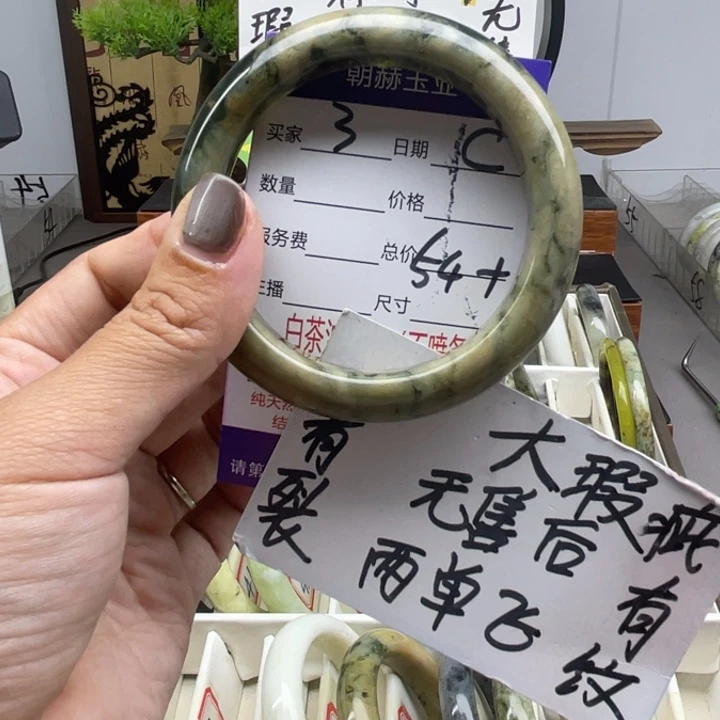 瑕
无
朝赫玉业
买家 3 日期 C
数量 价格
服务费 总价 54+
主播 尺寸
白茶
纯天然
结
请第
有裂
大瑕疵
无售后
两单飞
有纹